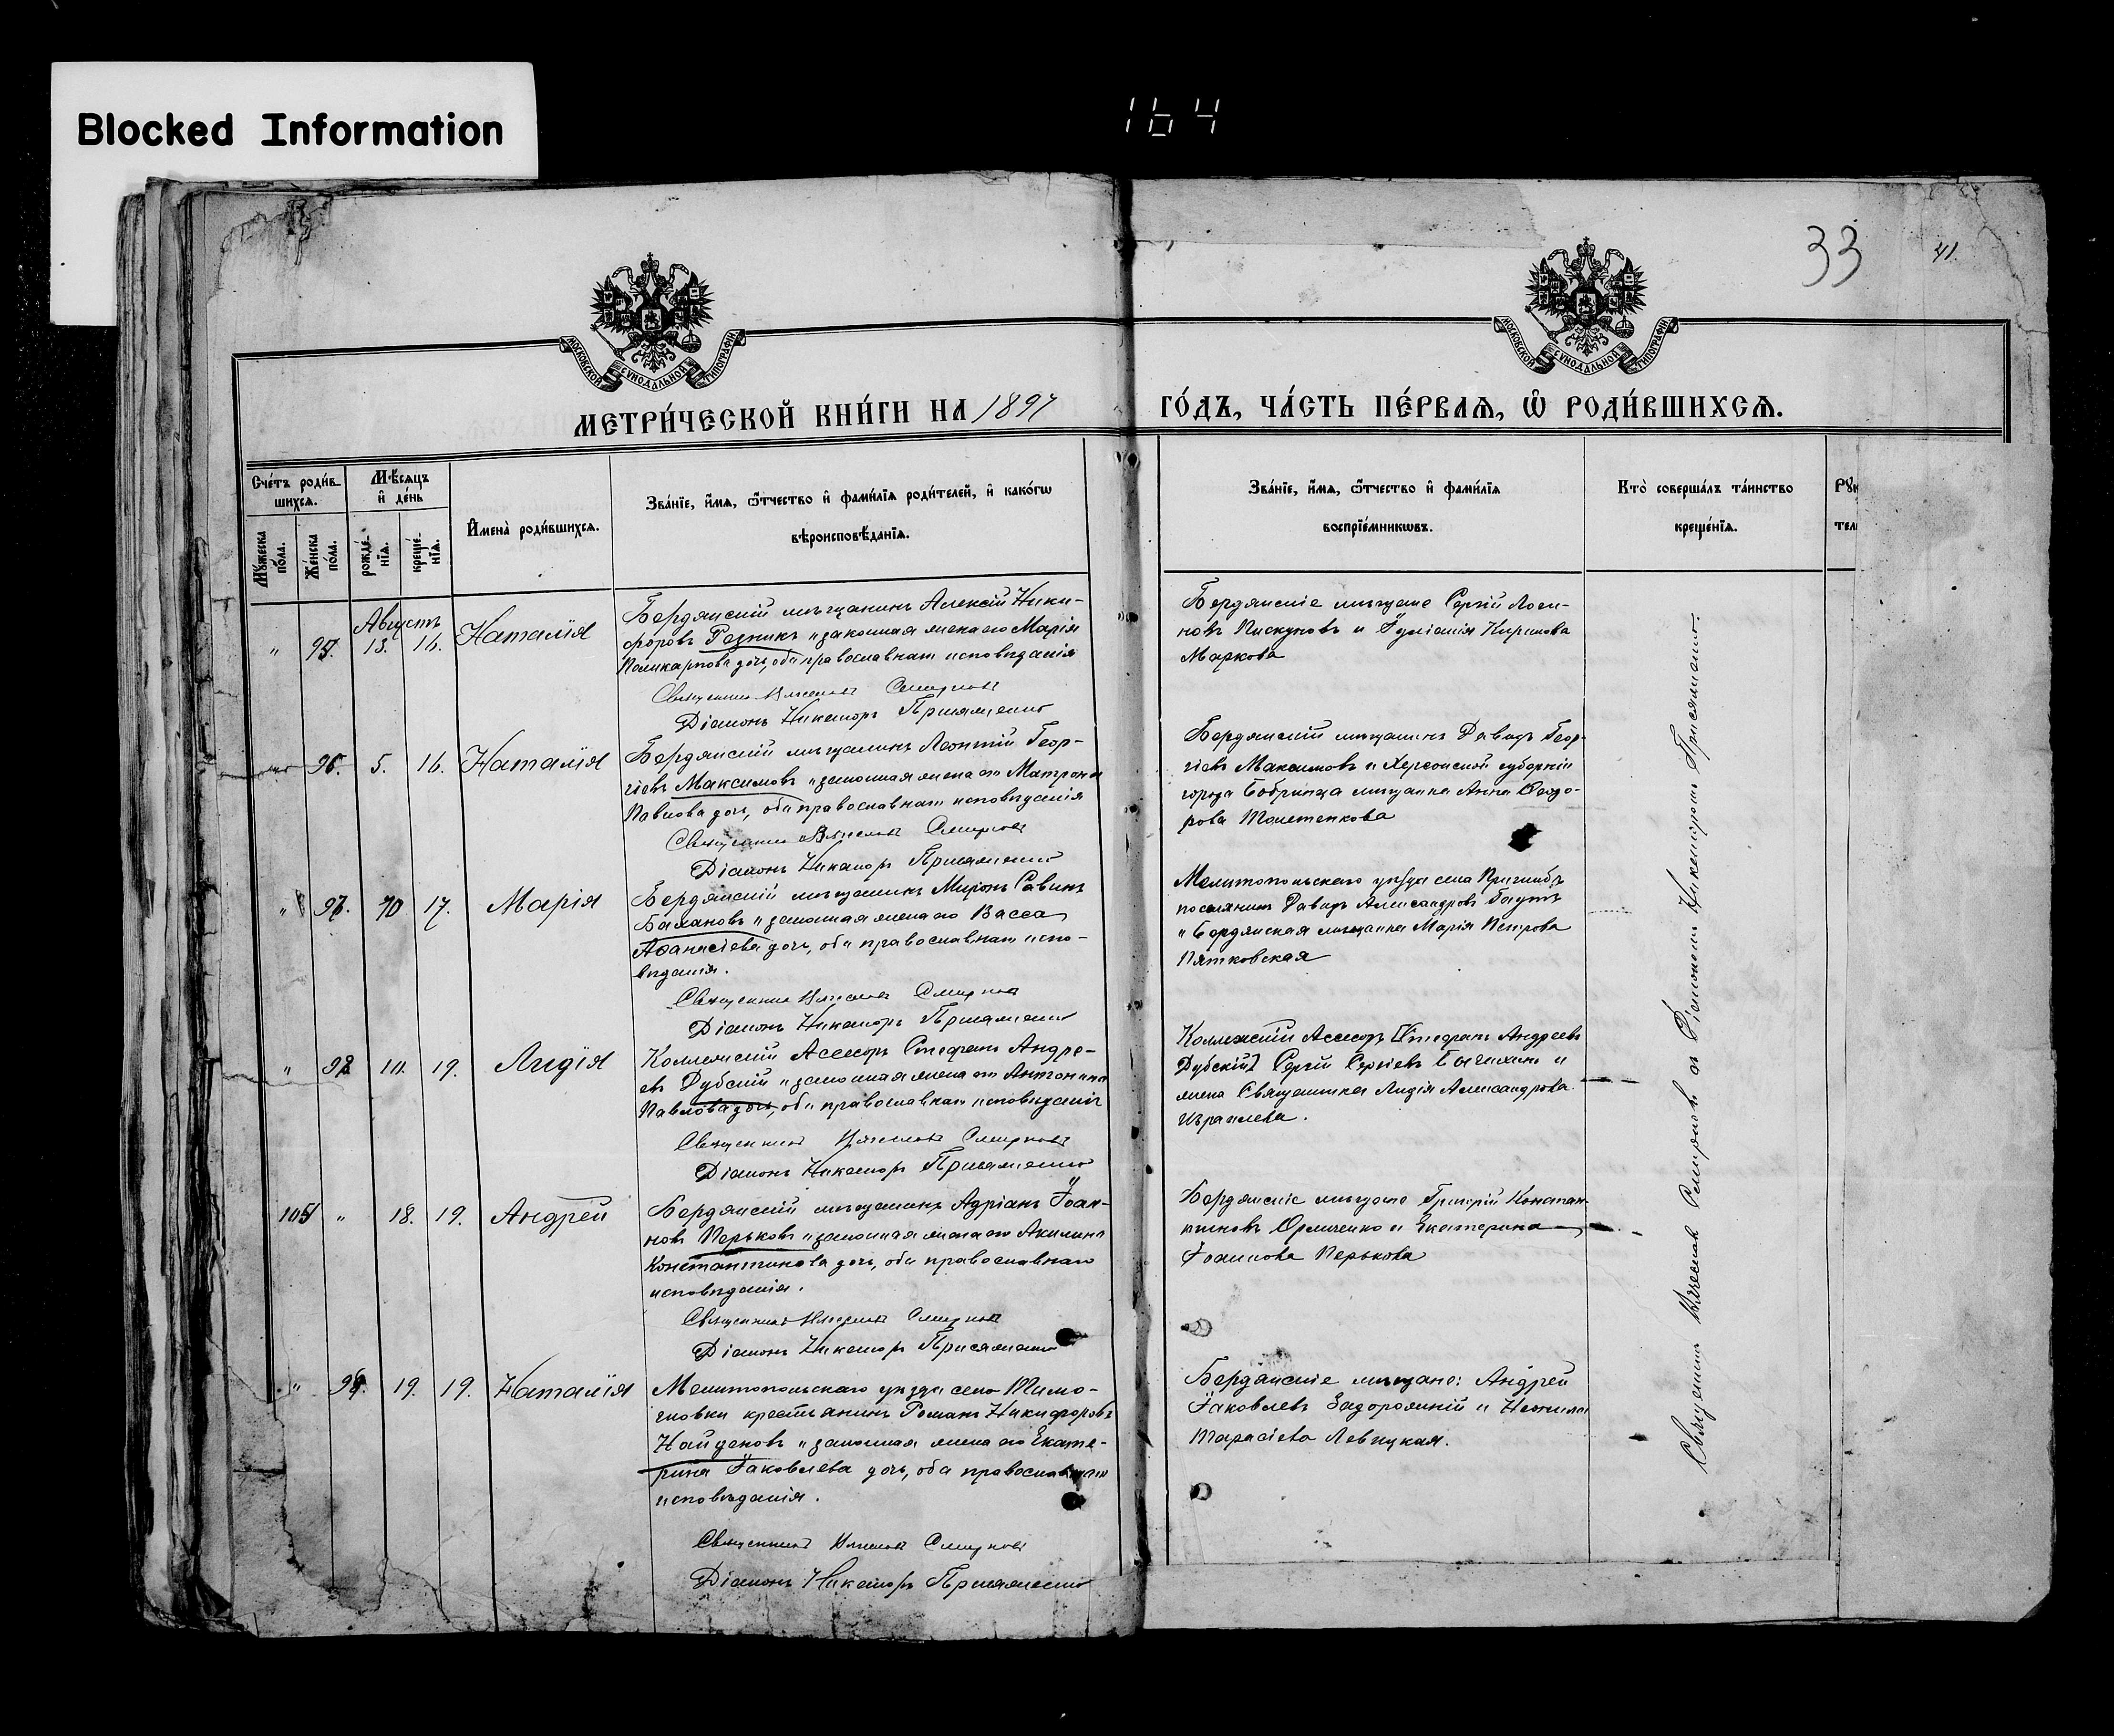 Blocked Information
164
33
41.
МОСКОВСКОЙ СУНОДАЛЬНОЙ ТИПОГРАФІИ
МОСКОВСКОЙ СУНОДАЛЬНОЙ ТИПОГРАФІИ
МЕТРИ́ЧЕСКОЙ КНИ́ГИ НА 1897
ГО́ДЪ, ЧА́СТЬ ПЕ́РВАѦ, Ѡ҆ РОДИ́ВШИХСѦ.
Сче́тъ роди́в-
шихсѧ.
Мꙋ́жеска по́ла.
Же́нска по́ла.
Мѣ́сѧцъ
и҆ де́нь
рожде́-
нїѧ.
креще́-
нїѧ.
И҆мена̀ роди́вшихсѧ.
Зва́нїе, и҆́мѧ, ѻ҆́тчество и҆ фами́лїѧ роди́телей, и҆ како́гѡ
вѣроисповѣ́данїѧ.
Зва́нїе, и҆́мѧ, ѻ҆́тчество и҆ фами́лїѧ
воспрїе́мникѡвъ.
Кто̀ соверша́лъ та́инство
креще́нїѧ.
Рꙋк
тел
Августъ
" 95. 13. 16. Наталія
Бердянскій мѣщанинъ Алексій Ники-
форовъ Резникъ и законная жена его Марія
Поликарпова дочь, оба православнаго исповѣданія
Священникъ Вячеслав Смирновъ
Діаконъ Никаноръ Присяженко
Бердянскіе мѣщане Сергій
новъ Пискуновъ и Іуліанія Кирилова
Маркова
96. 5. 16. Наталія
Бердянскій мѣщанинъ Леонтій Геор-
гіевъ Максимовъ и законная жена его Матрона
Павлова дочь, оба православнаго исповѣданія
Священникъ Вячеслав Смирновъ
Діаконъ Никаноръ Присяженко
Бердянскій мѣщанинъ Давидъ Геор-
гіевъ Максимовъ и Херсонской губерніи
города Бобринца мѣщанка Анна Ѳеодо-
рова
" 97. 10 17. Марія
Бердянскій мѣщанинъ Миронъ Савинъ
Балановъ и законная жена его Васса
Аѳанасіева дочь, оба православнаго испо-
вѣданія.
Священникъ Вячеслав Смирновъ
Діаконъ Никаноръ Присяженко
Мелитопольскаго уѣзда села
поселянинъ Давидъ Александровъ
и Бердянская мѣщанка Марія Петрова
Пятковская
" 98. 10. 19. Лидія
Коллежскій Асессоръ Стефанъ Андре-
евъ Дубскій и законная жена его Антонина
Павлова дочь, оба православнаго исповѣданія
Священникъ Вячеслав Смирновъ
Діаконъ Никаноръ Присяженко
Коллежскій Асессоръ [Стефанъ Андреевъ
Дубскій] Сергій Сергіевъ и
жена Священника Лидія Александрова
Израилева.
105 " 18. 19. Андрей
Бердянскій мѣщанинъ Адріанъ Іоан-
новъ Перьковъ и законная жена его Акилина
Константинова дочь, оба православнаго
исповѣданія.
Священникъ Вячеслав Смирновъ
Діаконъ Никаноръ Присяженко
Бердянскіе мѣщане Григорій Констан-
тиновъ и Екатерина
Іоаннова Перькова
" 99. 19. 19. Наталія
Мелитопольскаго уѣзда села Тимо-
шовки крестьянинъ Романъ Никифоровъ
Найденовъ и законная жена его Екате-
рина Іаковлева дочь, оба православнаго
исповѣданія.
Священникъ Вячеслав Смирновъ
Діаконъ Никаноръ Присяженко
Бердянскіе мѣщане: Андрей
Іаковлевъ Задорожній и
Тарасіева Левицкая.
Священникъ Вячеслав Смирновъ съ Діакономъ Никаноромъ Присяженко.